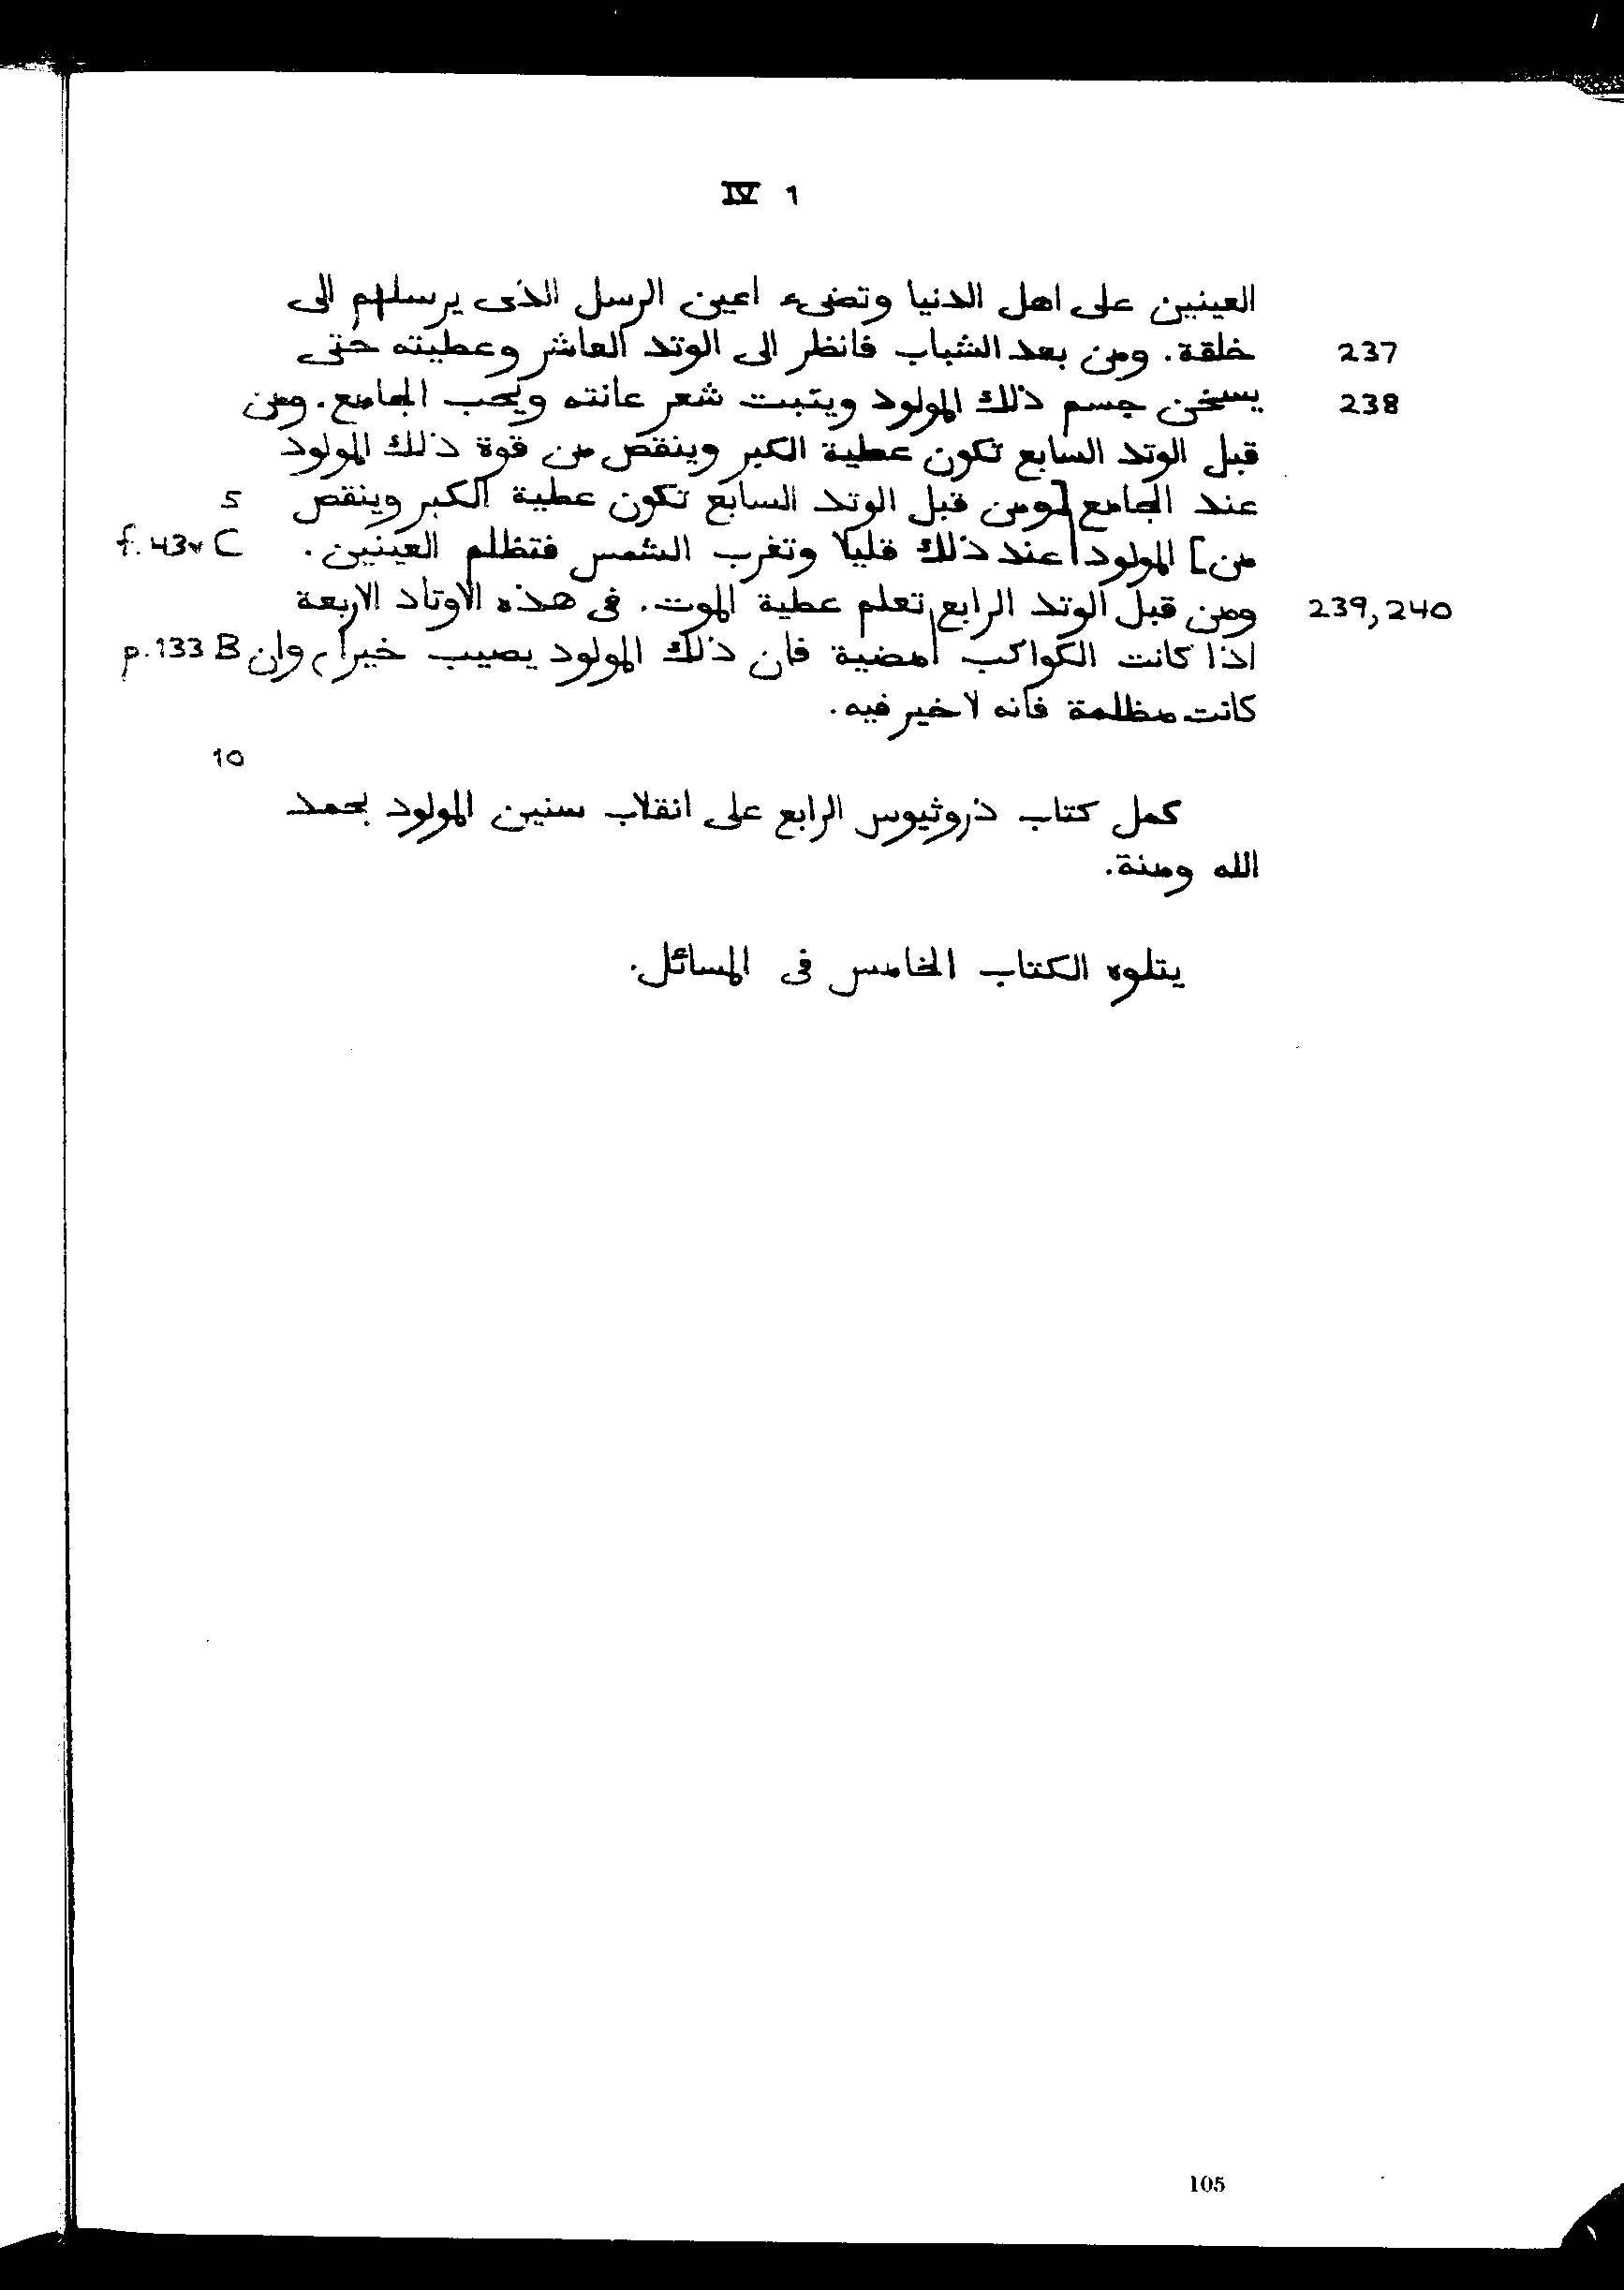 IV 1
العينين على اهل الدنيا وتضىء اعين الرسل الذى يرسلهم الى
237 خلقة. ومن بعد الشباب فانظر الى الوتد العاشر وعطيته حتى
238 يسخن جسم ذلك المولود وينبت شعر عانته ويحب الجامع. ومن
قبل الوتد السابع تكون عطية الكبر وينقص من قوة ذلك المولود
عند الجامع [ومن قبل الوتد السابع تكون عطية الكبر وينقص 5
من] المولود| عند ذلك قليلا وتغرب الشمس فتظلم العينين. f. 43v C
239, 240 ومن قبل الوتد الرابع تعلم عطية الموت. فى هذه الاوتاد الاربعة
اذا كانت الكواكب |مضية فان ذلك المولود يصيب خيرا، وان p. 133 B
كانت مظلمة فانه لا خير فيه.
10
كمل كتاب ذروثيوس الرابع على انقلاب سنين المولود بحمد
الله ومنة.
يتلوه الكتاب الخامس فى المسائل.
105